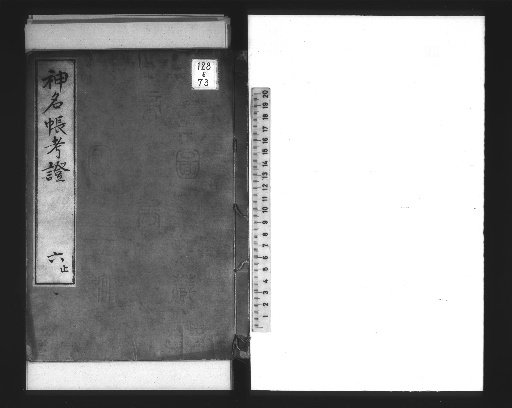 神名帳考證
六止
128
6
73
20
19
18
17
16
15
14
13
12
11
10
9
8
7
6
5
4
3
2
1